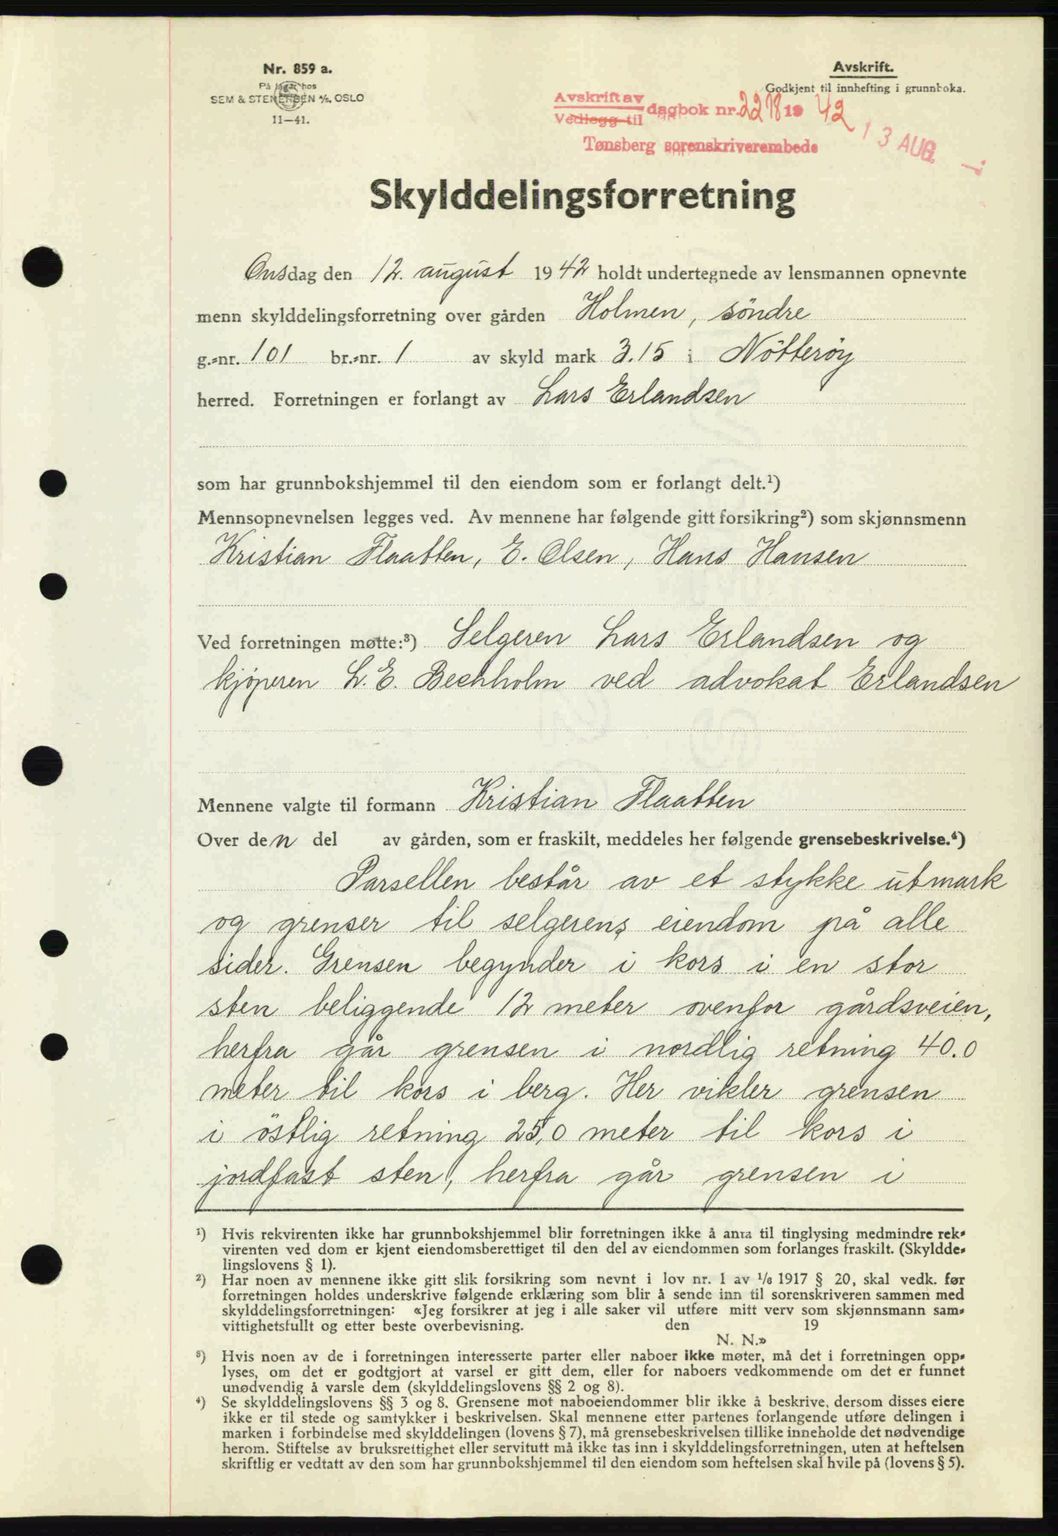 Nr. 859 a.
På lager hos
SEM & STENERSEN A/S. OSLO
11—41.
Avskrift.
Godkjent til innhefting i grunnboka.
Avskrift av
Vedlegg til dagbok nr. 2278 19 42
Tønsberg sorenskriverembede
13 AUG.
Skylddelingsforretning
Onsdag den 12. august 1942 holdt undertegnede av lensmannen opnevnte
menn skylddelingsforretning over gården Holmen, söndre
g.-nr. 101 br.-nr. 1 av skyld mark 3.15 i Nötteröy
herred. Forretningen er forlangt av Lars Erlandsen
som har grunnbokshjemmel til den eiendom som er forlangt delt.¹)
Mennsopnevnelsen legges ved. Av mennene har følgende gitt forsikring²) som skjønnsmenn
Kristian Flaatten, E. Olsen, Hans Hansen
Ved forretningen møtte:³) Selgeren Lars Erlandsen og
kjöperen L. E. Bechholm ved advokat Erlandsen
Mennene valgte til formann Kristian Flaatten
Over den del av gården, som er fraskilt, meddeles her følgende grensebeskrivelse.⁴)
Parsellen består av et stykke utmark
og grenser til selgerens eiendom på alle
sider. Grensen begynder i kors i en stor
sten beliggende 12 meter ovenfor gårdsveien,
herfra går grensen i nordlig retning 40.0
meter til kors i berg. Her vikler grensen
i östlig retning 25,0 meter til kors i
jordfast sten, herfra går grensen i
¹) Hvis rekvirenten ikke har grunnbokshjemmel blir forretningen ikke å anta til tinglysing medmindre rek-
virenten ved dom er kjent eiendomsberettiget til den del av eiendommen som forlanges fraskilt. (Skyldde-
lingslovens § 1).
²) Har noen av mennene ikke gitt slik forsikring som nevnt i lov nr. 1 av 1/6 1917 § 20, skal vedk. før
forretningen holdes underskrive følgende erklæring som blir å sende inn til sorenskriveren sammen med
skylddelingsforretningen: «Jeg forsikrer at jeg i alle saker vil utføre mitt verv som skjønnsmann sam-
vittighetsfullt og etter beste overbevisning. den 19
N. N.»
³) Hvis noen av de i forretningen interesserte parter eller naboer ikke møter, må det i forretningen opp-
lyses, om det er godtgjort at varsel er gitt dem, eller for naboers vedkommende om det er funnet
unødvendig å varsle dem (skylddelingslovens §§ 2 og 8).
⁴) Se skylddelingslovens §§ 3 og 8. Grensene mot naboeiendommer blir ikke å beskrive, dersom disses eiere
ikke er til stede og samtykker i beskrivelsen. Skal mennene etter partenes forlangende utføre delingen i
marken i forbindelse med skylddelingen (lovens § 7), må grensebeskrivelsen tillike inneholde det nødvendige
herom. Stiftelse av bruksrettighet eller servitutt må ikke tas inn i skylddelingsforretningen, uten at heftelsen
skriftlig er vedtatt av den som har grunnbokshjemmel til den eiendom som heftelsen skal hvile på (lovens § 5).